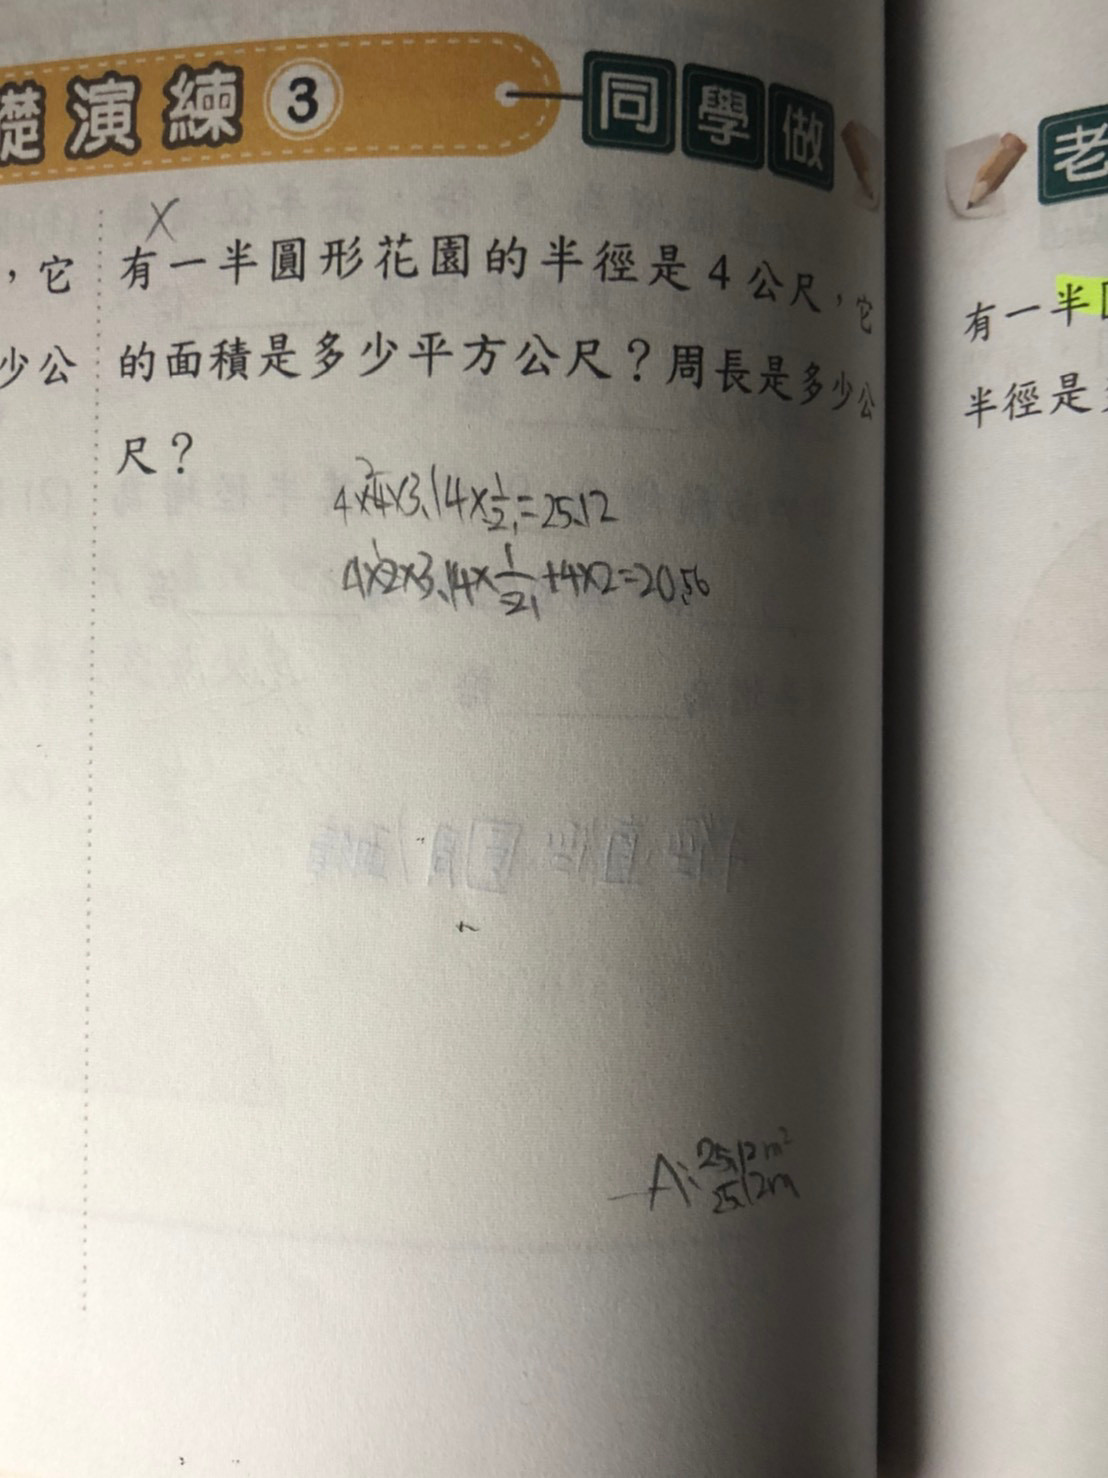 礎演練 3 同學做
老
X
，它
少公
有一半圓形花園的半徑是4公尺，它
的面積是多少平方公尺？周長是多少公
尺？
4×4×3.14×1/2=25.12
4×2×3.14×1/2+4×2=20.56
A:25.12m²
25.12m
有一半
半徑是